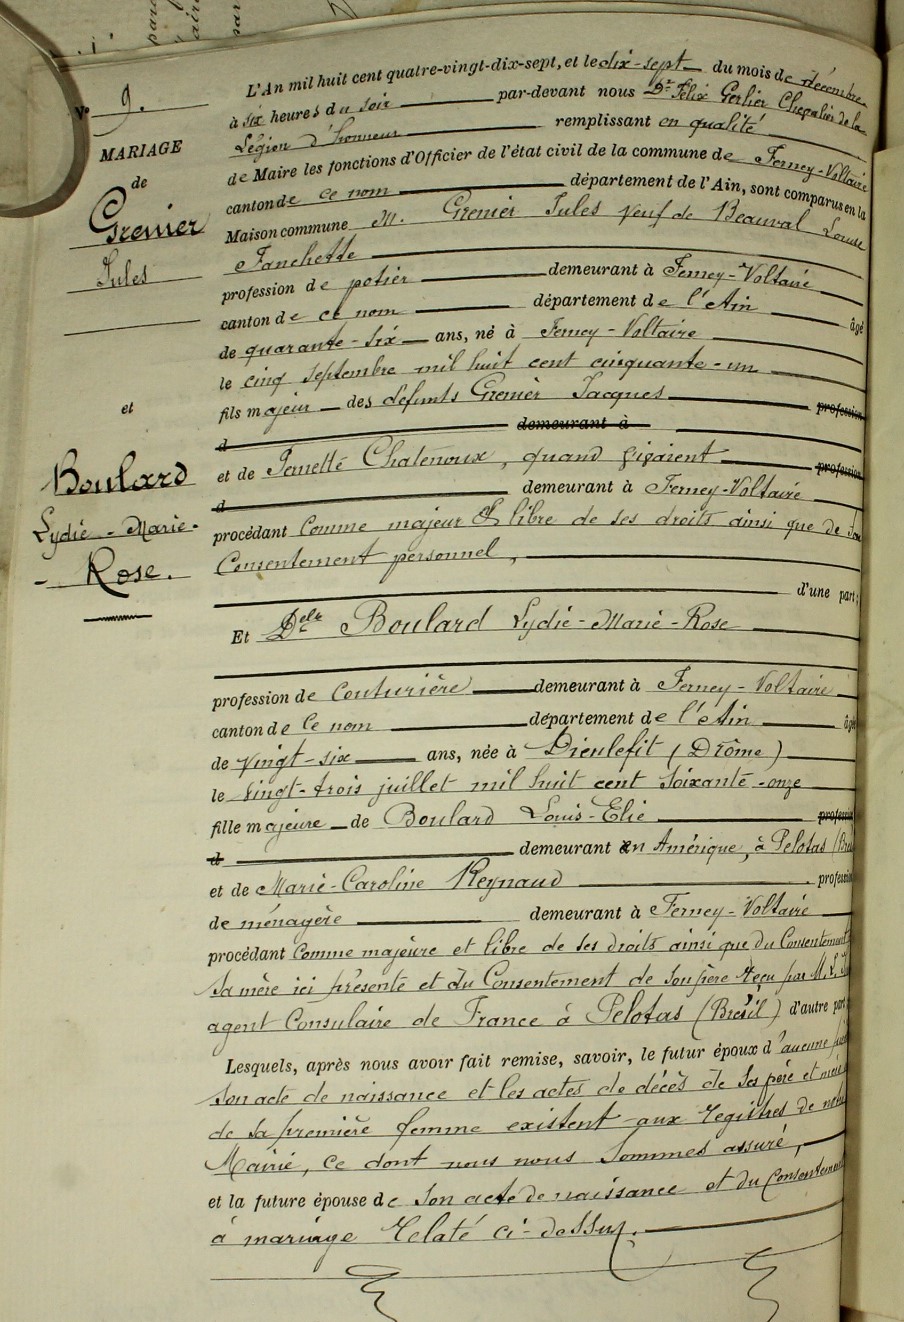 N° 9.
MARIAGE
de
Grenier
Jules
et
Boulard
Lydie - Marie -
- Rose.
L'An mil huit cent quatre-vingt-dix-sept, et le dix-sept du mois de décembre
à six heures du soir par-devant nous Dr Félix Gerlier Chevalier de la
Légion d'honneur remplissant en qualité
de Maire les fonctions d'Officier de l'état civil de la commune de Ferney-Voltaire
canton de ce nom département de l'Ain, sont comparus en la
Maison commune M. Grenier Jules veuf de Beauval Louise
Fanchette
profession de potier demeurant à Ferney-Voltaire
canton de ce nom département de l'Ain âgé
de quarante-six ans, né à Ferney-Voltaire
le cinq septembre mil huit cent cinquante-un
fils majeur des défunts Grenier Jacques profession
d demeurant à
et de Pernette Chatenoux, quand vivaient profession
d demeurant à Ferney-Voltaire
procédant Comme majeur et libre de ses droits ainsi que de son
Consentement personnel,
d'une part;
Et Delle Boulard Lydie-Marie-Rose
profession de Couturière demeurant à Ferney-Voltaire
canton de ce nom département de l'Ain âgé
de vingt-six ans, née à Dieulefit (Drôme)
le vingt-trois juillet mil huit cent soixante-onze
fille majeure de Boulard Louis-Elie profession
d demeurant en Amérique, à Pelotas
et de Marie-Caroline Reynaud profession
de ménagère demeurant à Ferney-Voltaire
procédant Comme majeure et libre de ses droits ainsi que du Consentement
sa mère ici présente et du Consentement de son père reçu par M. L.
agent Consulaire de France à Pelotas (Brésil) d'autre part
Lesquels, après nous avoir fait remise, savoir, le futur époux d'aucune
son acte de naissance et les actes de décès de ses père et mère
de sa première femme existent aux registres de notre
Mairie, ce dont nous nous sommes assuré,
et la future épouse de son acte de naissance et du Consentement
à mariage relaté ci-dessus.